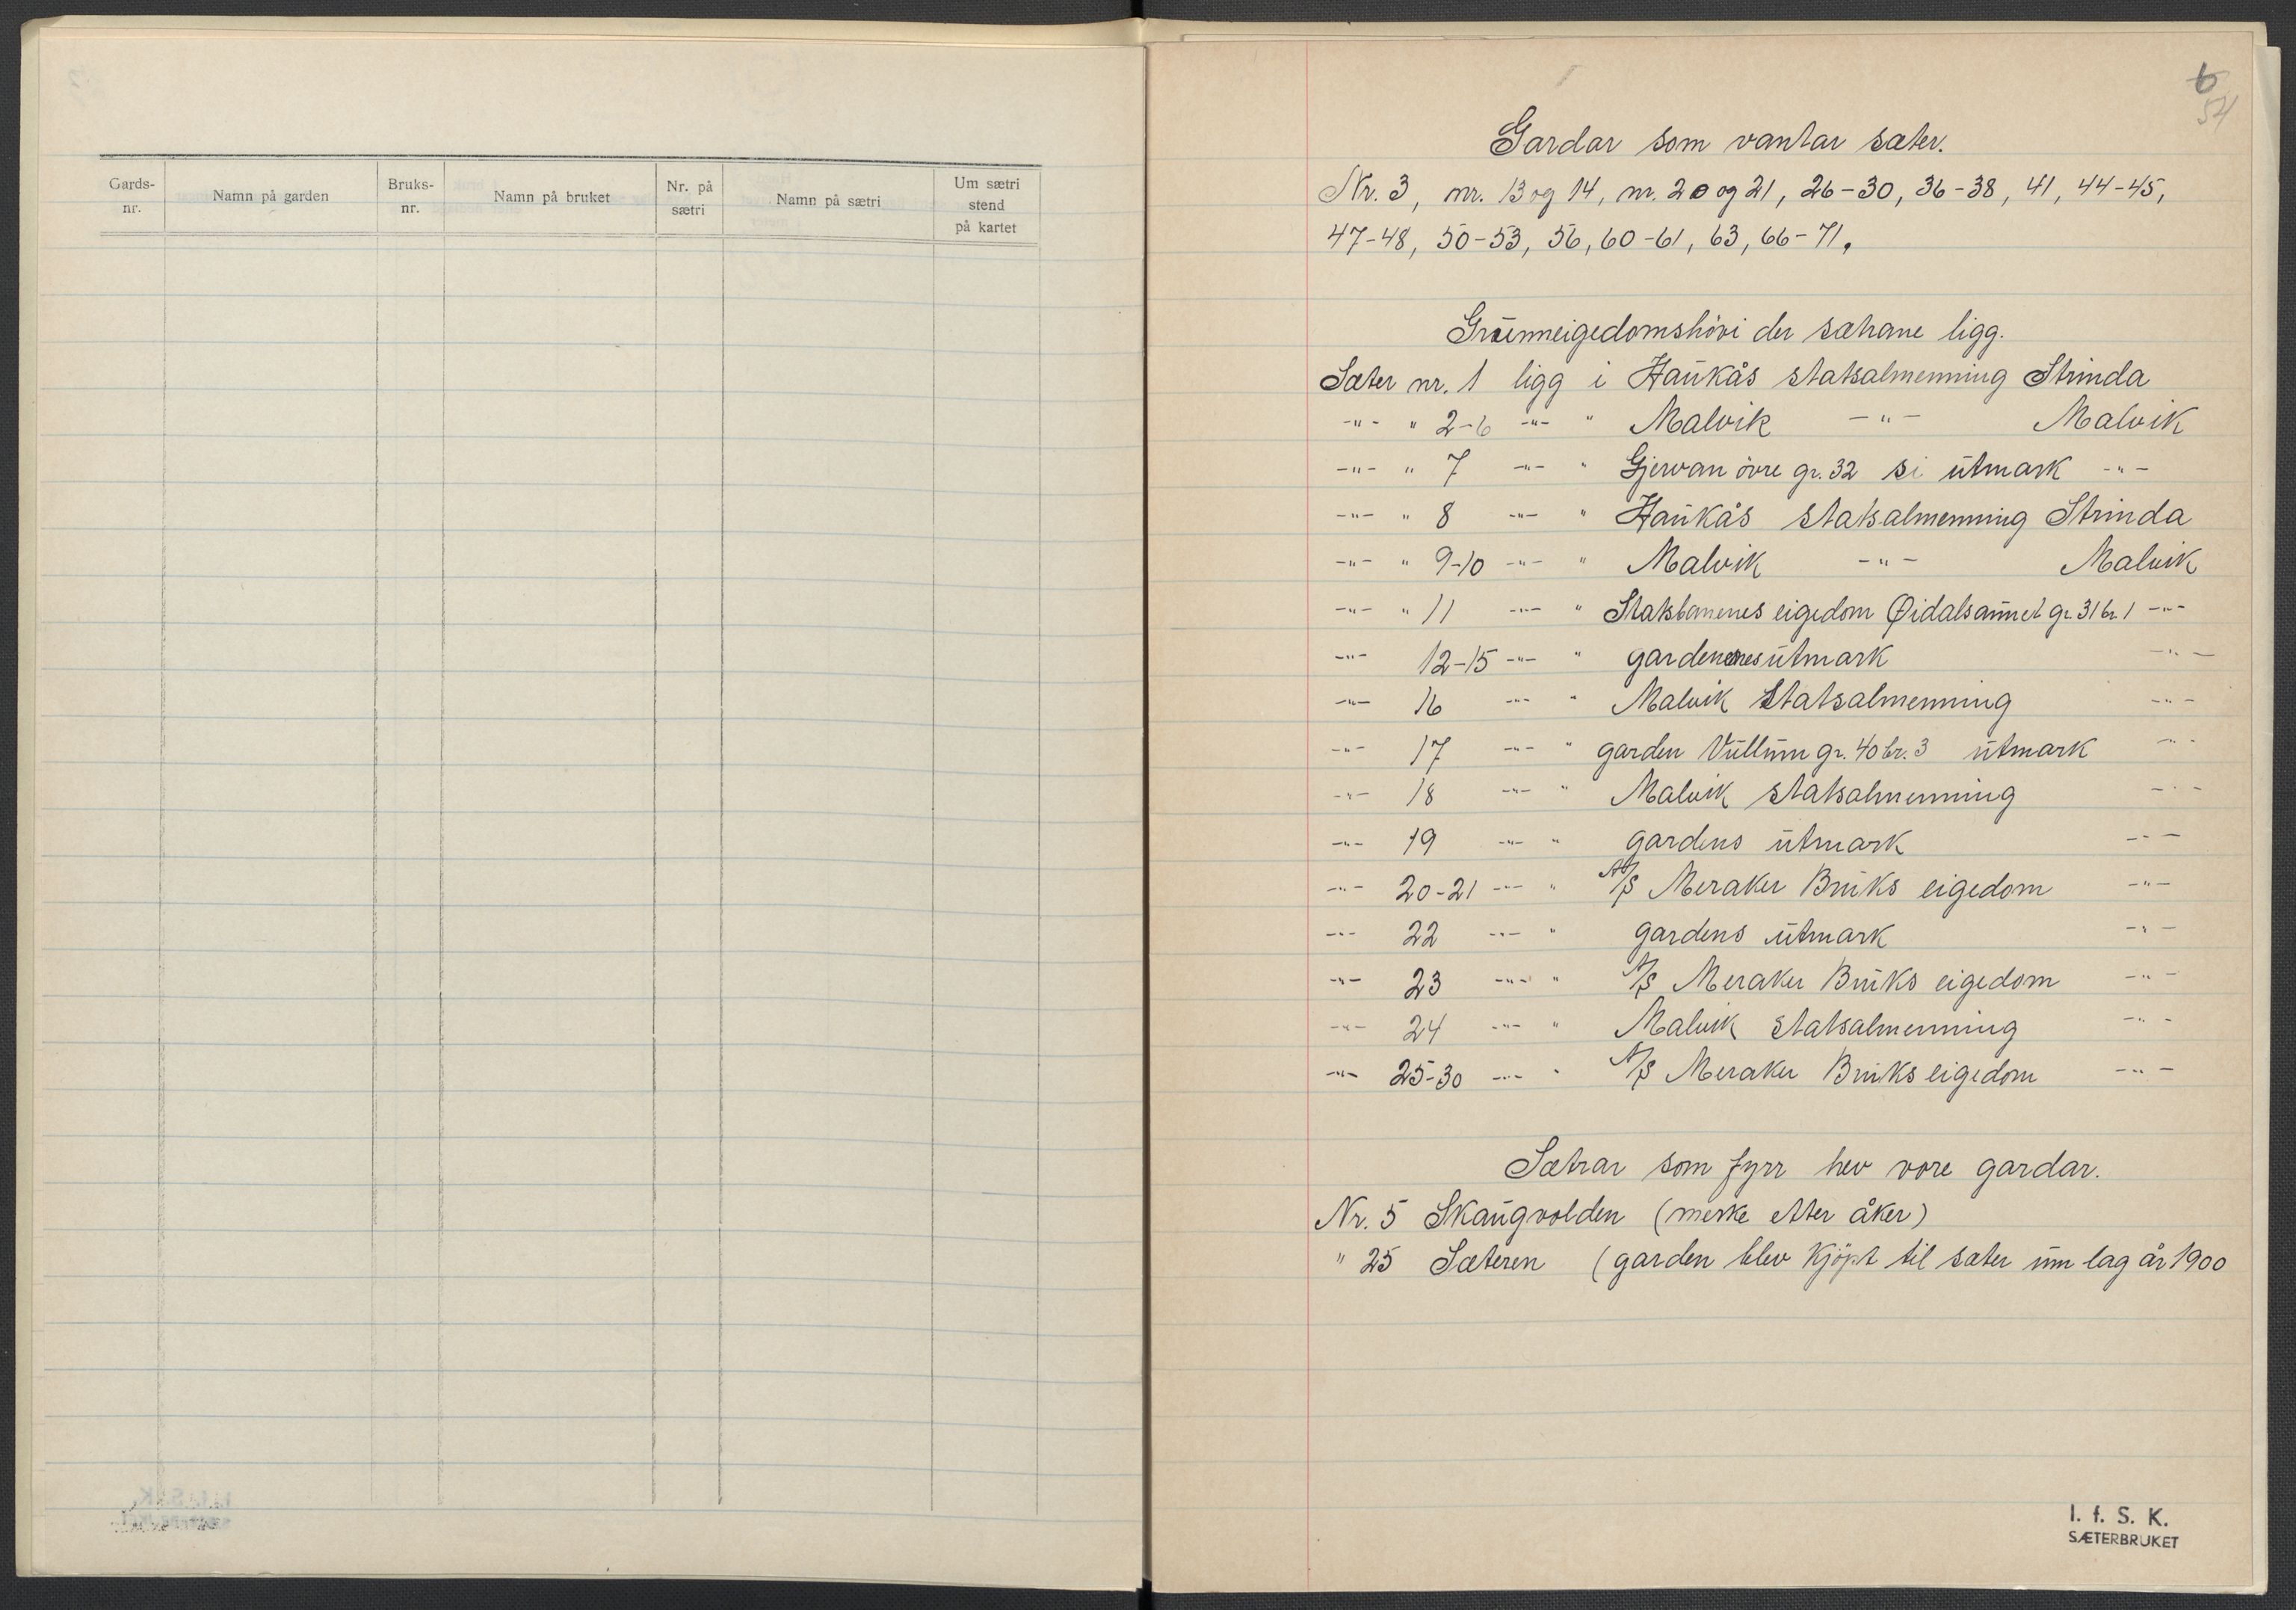 Gards-nr. Namn på garden Bruks-nr. Namn på bruket Nr. på sætri Namn på sætri Um sætri stend på kartet
6
54
Gardar som vantar sæter.
Nr. 3, nr. 13 og 14, nr. 20 og 21, 26-30, 36-38, 41, 44-45,
47-48, 50-53, 56, 60-61, 63, 66-71.
Grunneigedomshövi der sætrane ligg.
Sæter nr. 1 ligg i Haukås statsalmenning Strinda
-"- " 2-6 -"- " Malvik -"- Malvik
-"- " 7 -"- " Gjervan övre gr. 32 si utmark -"-
-"- " 8 -"- " Haukås statsalmenning Strinda
-"- " 9-10 -"- " Malvik -"- Malvik
-"- " 11 -"- " Statsbanenes eigedom gr. 31 br. 1 -"-
-"- 12-15 -"- " gardenes utmark -"-
-"- 16 -"- " Malvik Statsalmenning -"-
-"- 17 -"- " garden Vullum gr. 40 br. 3 utmark -"-
-"- 18 -"- " Malvik statsalmenning -"-
-"- 19 -"- " gardens utmark -"-
-"- 20-21 -"- " A/S Meraker Bruks eigedom -"-
-"- 22 -"- " gardens utmark -"-
-"- 23 -"- " A/S Meraker Bruks eigedom -"-
-"- 24 -"- " Malvik statsalmenning -"-
-"- 25-30 -"- " A/S Meraker Bruks eigedom -"-
Sætrar som fyrr hev vore gardar.
Nr. 5 Skaugvolden (merke etter åker)
" 25 Sæteren (garden blev kjöpt til sæter um lag år 1900
I. f. S. K.
SÆTERBRUKET